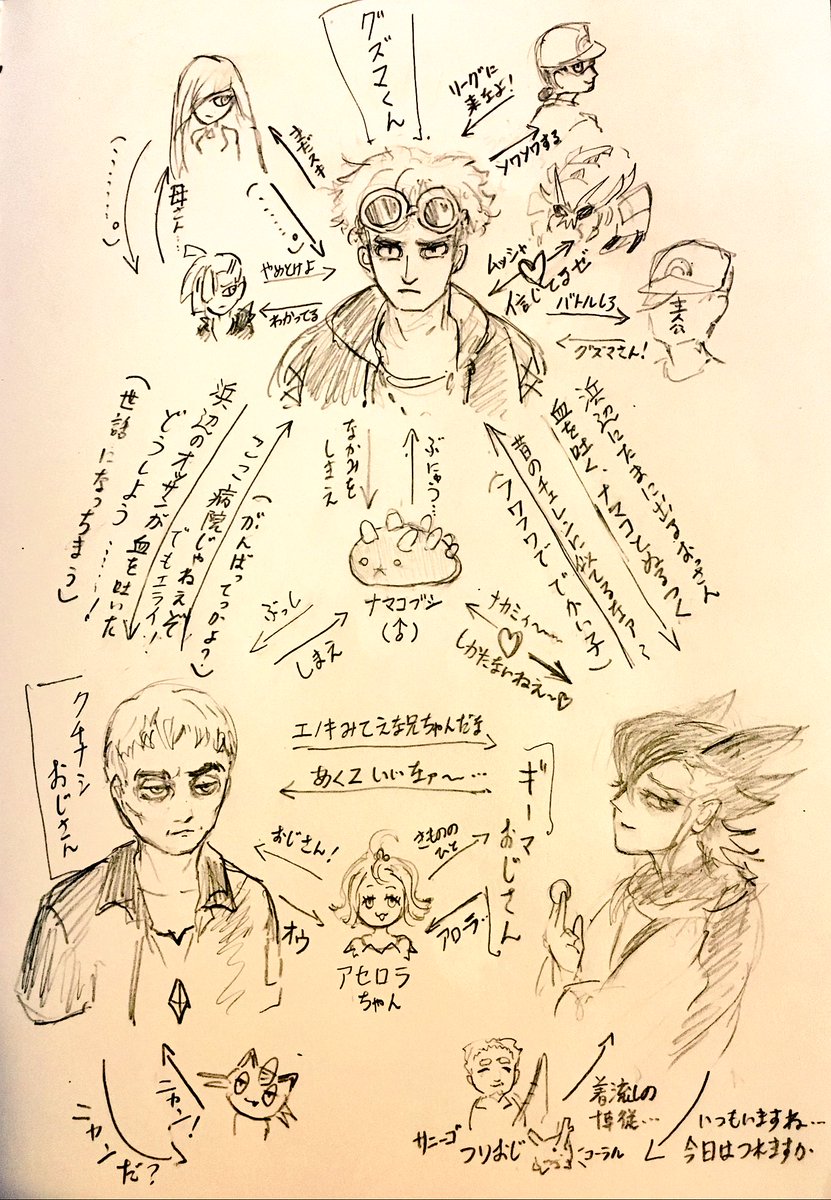 グズマくん
リーグに
来なよ!
ソワソワする
まだスキ
(……。)
母さん…
(……。)
やめとけよ
わかってる
ムッシャ
信じてるゼ
バトルしろ
グズマさん!
主人公
浜辺のオッサンが血を吐いた
どうしよう……!
(世話になっちまう)
ここ病院じゃねえぞ
でもエライ!
(がんばってっかよう?)
なかみを
しまえ
ぶにゅう…
ナマコブシ
(♂)
浜辺にたまにいるおっさん
血を吐く、ナマコとぬるつく
昔のチェレンに似てるねェア?
(フワフワで でかい子)
ぶっし
しまえ
ナカミィ〜…
しかたないねえ〜♡
クチナシ
おじさん
エノキみてえな兄ちゃんだな
あくZいいなァ〜…
ギーマおじさん
おじさん!
オウ
きものの
ひと
アローラ…
アセロラ
ちゃん
ニャン!
ニャンだ?
サニーゴ
フリおじ
コーラル
着流しの
博徒…
いつもいますね…
今日はつれますか